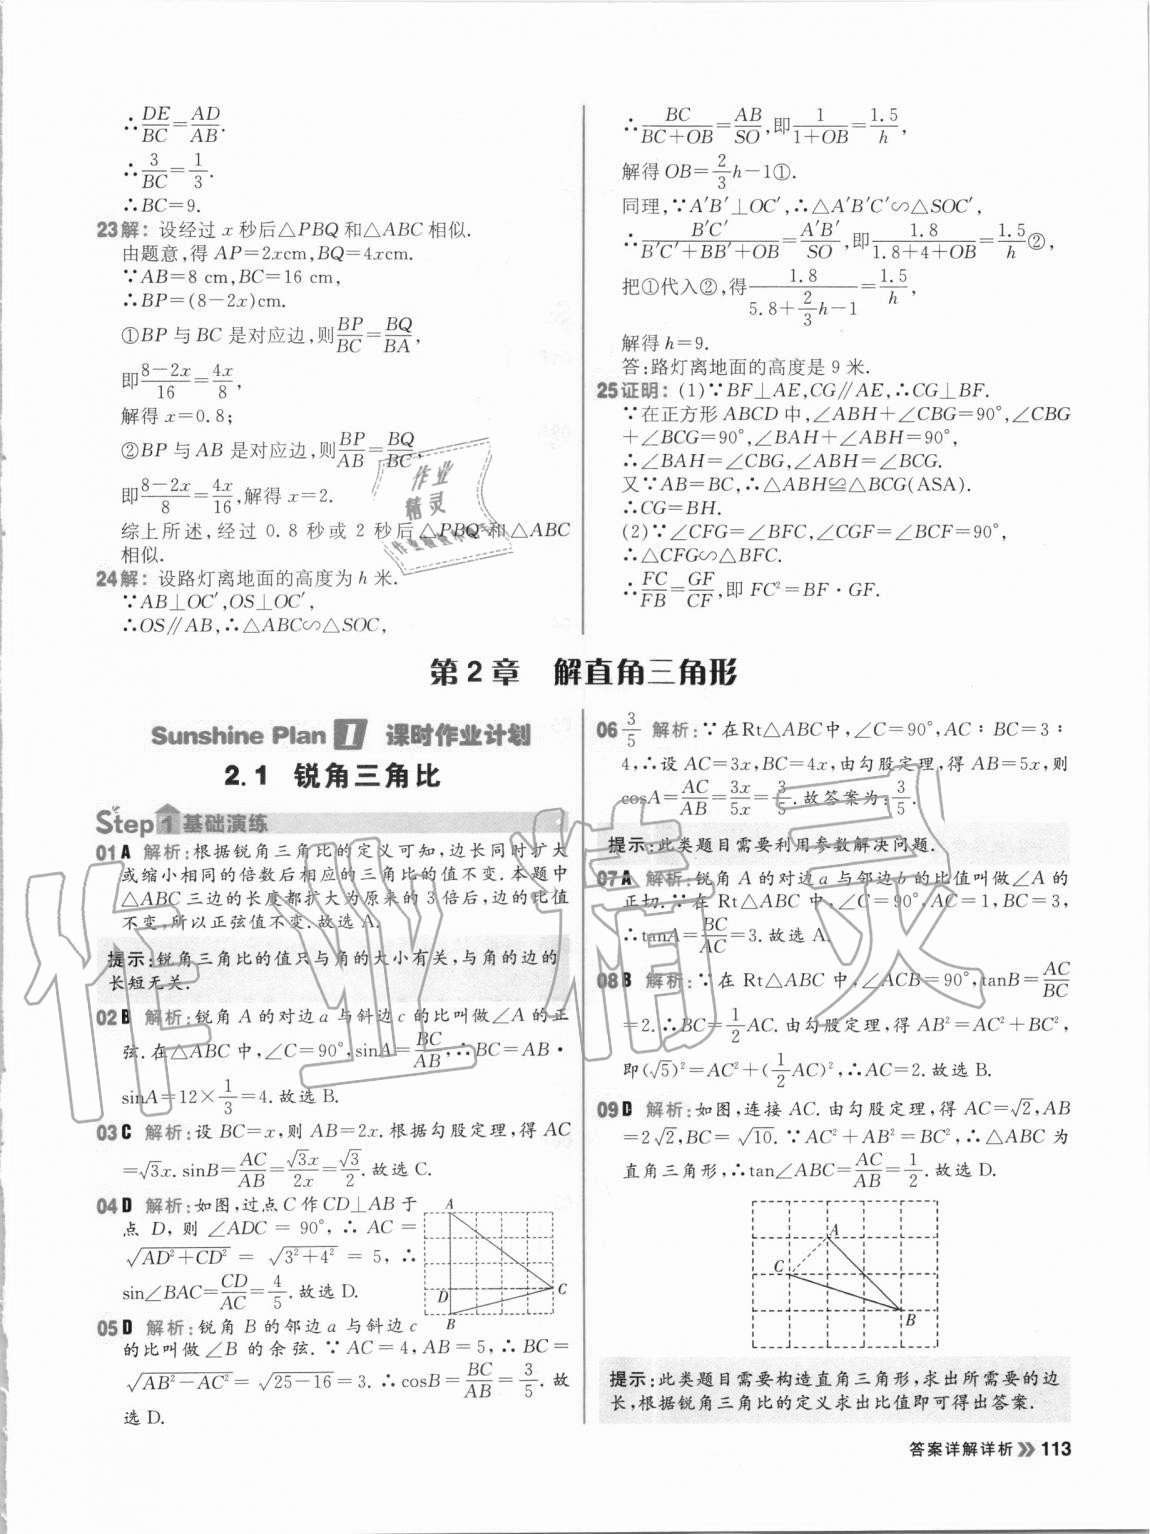 ∴DE/BC=AD/AB.
∴3/BC=1/3.
∴BC=9.
23解: 设经过 x 秒后△PBQ 和△ABC 相似.
由题意,得 AP=2xcm,BQ=4xcm.
∵AB=8 cm,BC=16 cm,
∴BP=(8-2x)cm.
①BP 与 BC 是对应边,则BP/BC=BQ/BA,
即8-2x/16=4x/8,
解得 x=0.8;
②BP 与 AB 是对应边,则BP/AB=BQ/BC,
即8-2x/8=4x/16,解得 x=2.
综上所述,经过 0.8 秒或 2 秒后△PBQ 和△ABC
相似.
24解: 设路灯离地面的高度为 h 米.
∵AB⊥OC′,OS⊥OC′,
∴OS∥AB,∴△ABC∽△SOC,
∴BC/BC+OB=AB/SO,即1/1+OB=1.5/h,
解得 OB=2/3h-1①.
同理,∵A′B′⊥OC′,∴△A′B′C′∽△SOC′,
∴B′C′/B′C′+BB′+OB=A′B′/SO,即1.8/1.8+4+OB=1.5/h②,
把①代入②,得1.8/5.8+2/3h-1=1.5/h,
解得 h=9.
答:路灯离地面的高度是 9 米.
25证明: (1)∵BF⊥AE,CG∥AE,∴CG⊥BF.
∵在正方形 ABCD 中,∠ABH+∠CBG=90°,∠CBG
+∠BCG=90°,∠BAH+∠ABH=90°,
∴∠BAH=∠CBG,∠ABH=∠BCG.
又∵AB=BC,∴△ABH≌△BCG(ASA).
∴CG=BH.
(2)∵∠CFG=∠BFC,∠CGF=∠BCF=90°,
∴△CFG∽△BFC.
∴FC/FB=GF/CF,即 FC²=BF·GF.
第 2 章 解直角三角形
Sunshine Plan 1 课时作业计划
2.1 锐角三角比
Step 1 基础演练
01 A 解析:根据锐角三角比的定义可知,边长同时扩大
或缩小相同的倍数后相应的三角比的值不变.本题中
△ABC 三边的长度都扩大为原来的 3 倍后,边的比值
不变,所以正弦值不变.故选 A.
提示:锐角三角比的值只与角的大小有关,与角的边的
长短无关.
02 B 解析:锐角 A 的对边 a 与斜边 c 的比叫做∠A 的正
弦.在△ABC 中,∠C=90°,sinA=BC/AB,∴BC=AB·
sinA=12×1/3=4.故选 B.
03 C 解析:设 BC=x,则 AB=2x.根据勾股定理,得 AC
=√3x.sinB=AC/AB=√3x/2x=√3/2.故选 C.
04 D 解析:如图,过点 C 作 CD⊥AB 于
点 D, 则 ∠ADC = 90°, ∴ AC =
√AD²+CD² = √3²+4² = 5, ∴
sin∠BAC=CD/AC=4/5.故选 D.
A
D
C
B
05 D 解析:锐角 B 的邻边 a 与斜边 c
的比叫做 ∠B 的余弦. ∵ AC=4, AB=5, ∴ BC=
√AB²-AC²=√25-16=3. ∴ cosB=BC/AB=3/5. 故
选 D.
06 3/5 解析:∵在Rt△ABC中,∠C=90°,AC∶BC=3∶
4,∴设 AC=3x,BC=4x,由勾股定理,得 AB=5x,则
cosA=AC/AB=3x/5x=3/5.故答案为:3/5.
提示:此类题目需要利用参数解决问题.
07 A 解析:锐角 A 的对边 a 与邻边 b 的比值叫做∠A 的
正切.∵在 Rt△ABC 中,∠C=90°,AC=1,BC=3,
∴tanA=BC/AC=3.故选 A.
08 B 解析:∵在 Rt△ABC 中,∠ACB=90°,tanB=AC/BC
=2.∴BC=1/2AC.由勾股定理,得 AB²=AC²+BC²,
即(√5)²=AC²+(1/2AC)²,∴AC=2.故选 B.
09 D 解析:如图,连接 AC.由勾股定理,得 AC=√2,AB
=2√2,BC=√10.∵AC²+AB²=BC²,∴△ABC 为
直角三角形,∴tan∠ABC=AC/AB=1/2.故选 D.
A
C
B
提示:此类题目需要构造直角三角形,求出所需要的边
长,根据锐角三角比的定义求出比值即可得出答案.
答案详解详析 113
作业
精灵
作业精灵